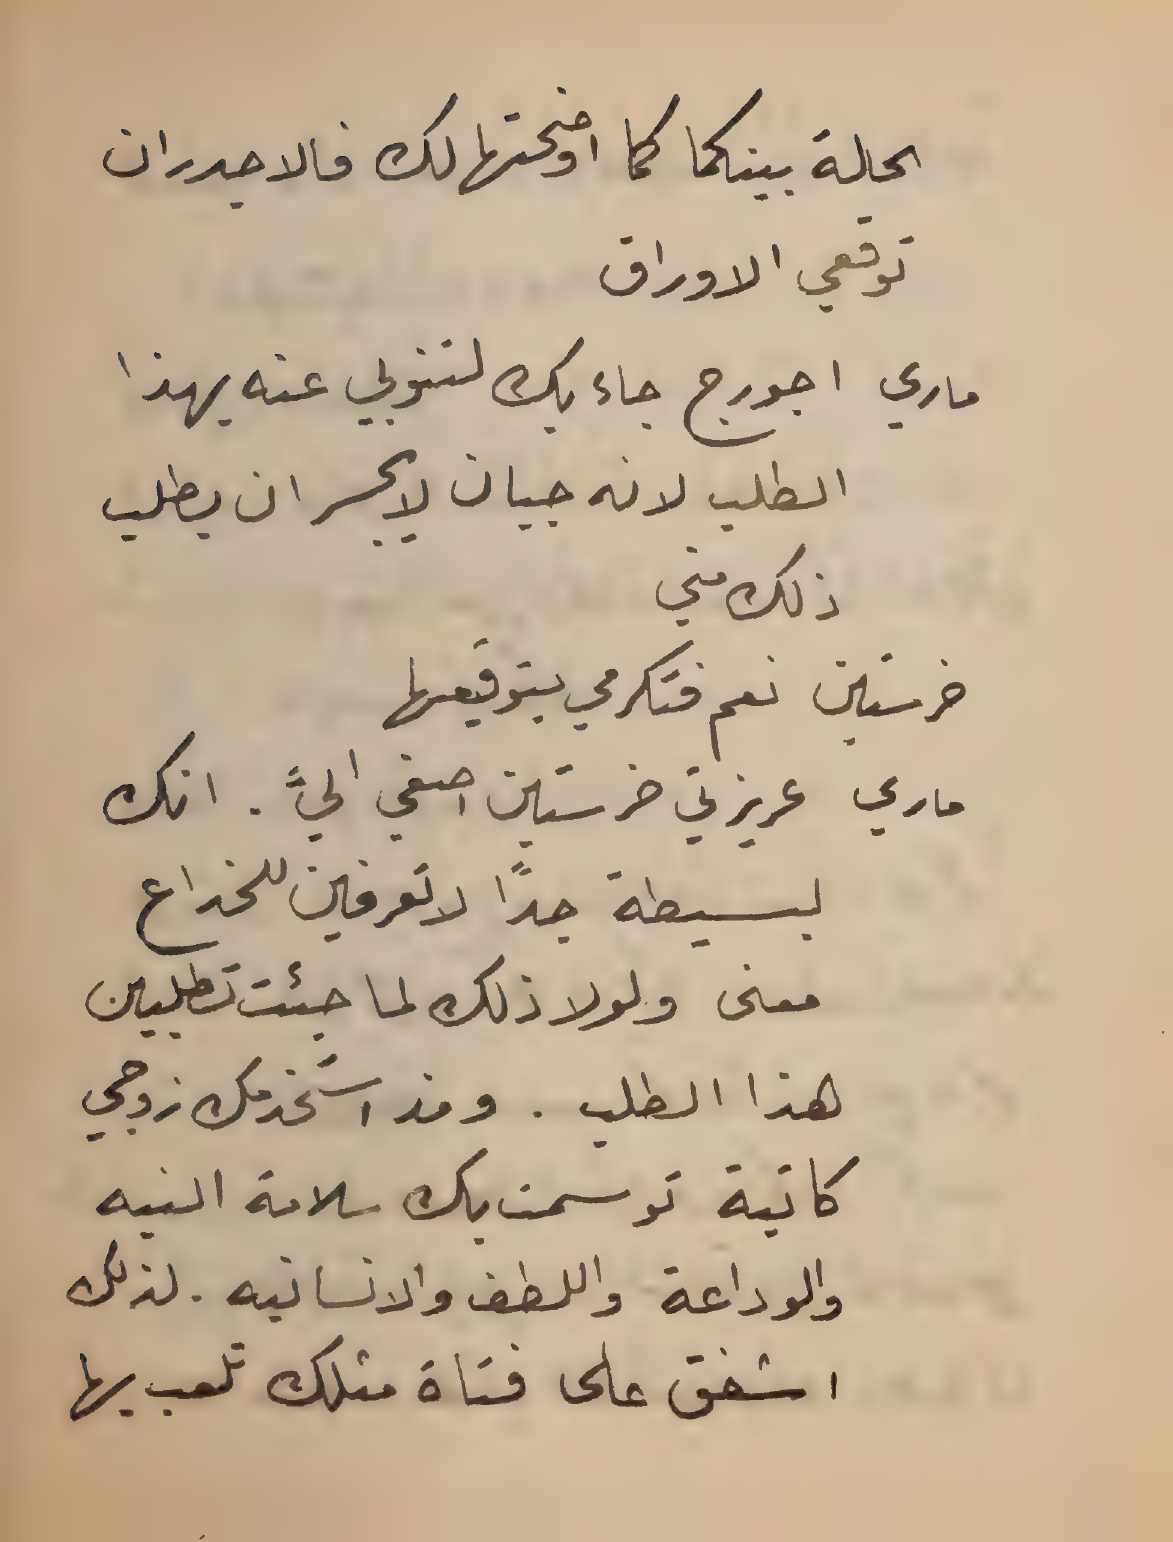 الحالة بينكما كما اوضحتها لك فالاجدر ان
توقعي الاوراق
ماري اجورج جاء بك لتنوبي عنه بهذا
الطلب لانه جبان لا يجسر ان يطلب
ذلك مني
خرستين نعم فتكرمي بتوقيعها
ماري عزيزتي خرستين اصغي اليَّ . انك
بسيطة جدًا لا تعرفين للخداع
معنى ولولا ذلك لما جئت تطلبين
هذا الطلب . ومذ استخدمك زوجي
كاتبة توسمت بك سلامة النيه
والوداعة واللطف والانسانيه . لذلك
اشفق على فتاة مثلك تلعب بها